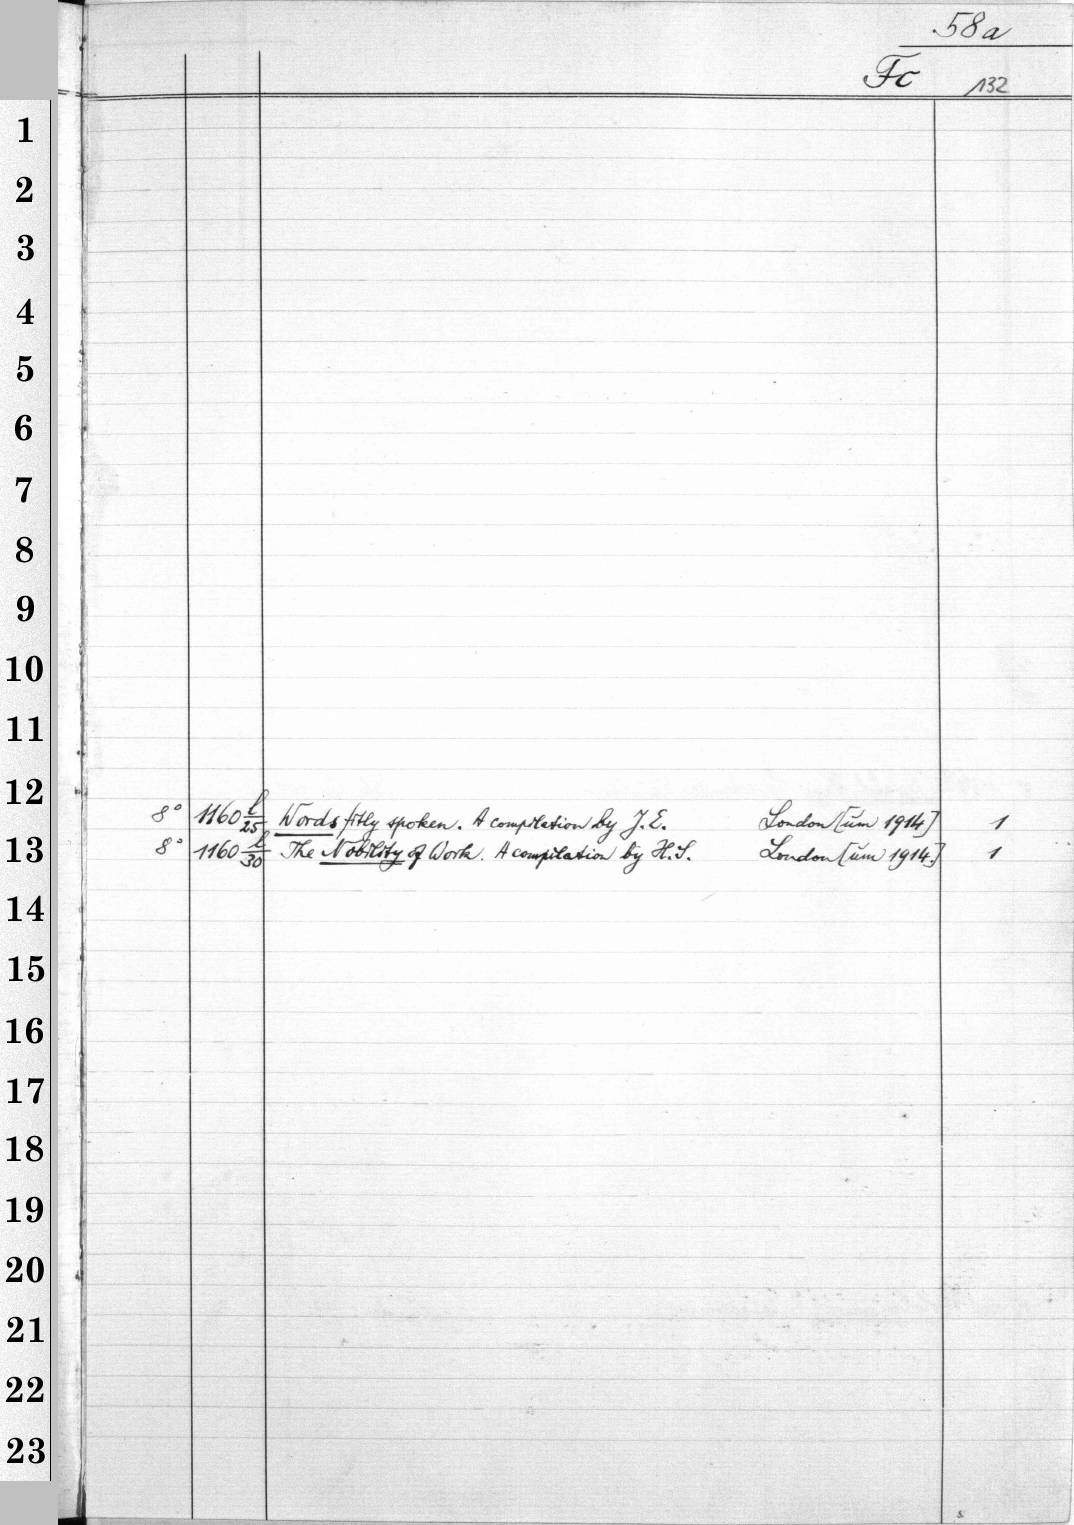 58a
Fc 132
1
2
3
4
5
6
7
8
9
10
11
12
8° 1160 l/25 Words fitly spoken. A compilation by J. E. London [um 1914] 1
13
8° 1160 l/30 The Nobility of Work. A compilation by H. S. London [um 1914.] 1
14
15
16
17
18
19
20
21
22
23